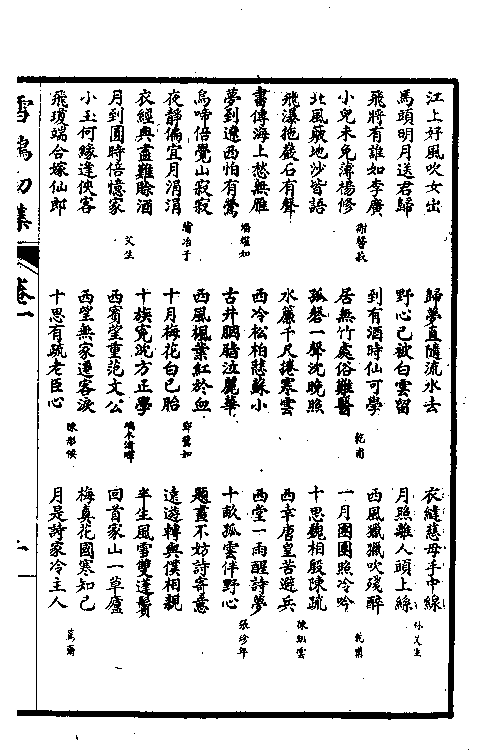 江上好風吹女出
馬頭明月送君歸
飛將有誰如李廣
小兒未免薄楊修
北風蔽地沙皆語
飛瀑拖巖石有聲
書傳海上愁無雁
夢到遼西怕有鶯
楊煜如
烏啼倍覺山寂寂
夜靜偏宜月涓涓
衣經典盡難賒酒
月到圓時倍憶家
艾生
小玉何緣逢俠客
飛瓊端合嫁仙郎
歸夢直隨流水去
野心已被白雲留
到有酒時仙可學
居無竹處俗難醫
乾甫
孤磬一聲沈晚照
水簾千尺捲寒雲
西冷松柏愁蘇小
古井胭脂泣麗華
西風楓葉紅於血
十月梅花白已胎
十族冤沈方正學
西賓望重范文公
西望無家遷客淚
十思有疏老臣心
衣縫慈母手中線
月照離人頭上絲
孫艾生
西風獵獵吹殘醉
一月團團照冷吟
乾甫
十思觀相殷陳疏
西幸唐皇苦避兵
陳凱雲
西堂一雨醒詩夢
十畝孤雲伴野心
張珍年
題畫不妨詩寄意
遠遊轉與僕相親
半生風雪雙蓬鬢
回首家山一草廬
梅真花國寒知己
月是詩家冷主人
雪鴻初集
卷一